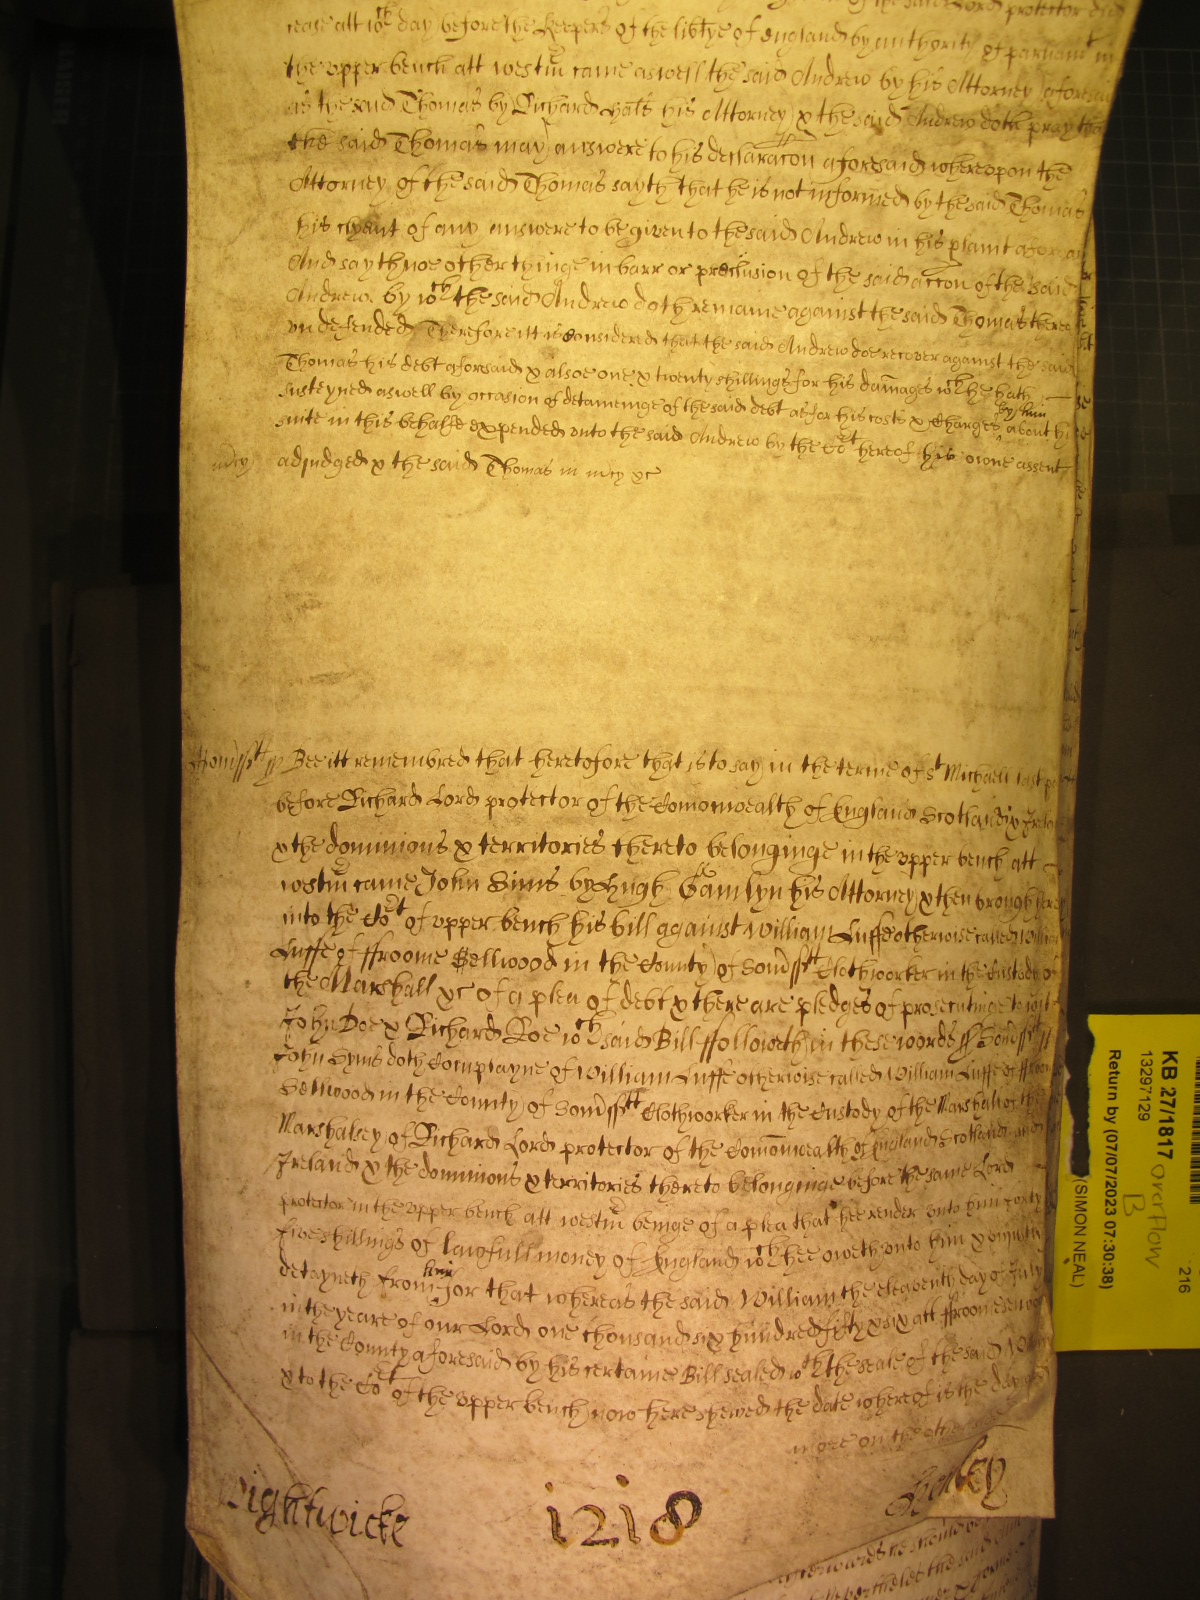 of the said Lord protector died
cease att wch day before the Keepers of the libtye of England by authority of parliamt in
the upper bench att westm̄ came aswell the said Andrew by his Attorney aforesaid
as the said Thomas by Richard his Attorney & the said Andrew doth pray that
the said Thomas may answere to his declaracon aforesaid whereupon the
Attorney of the said Thomas sayth that he is not informed by the said Thomas
his clyent of any answere to be given to the said Andrew in his plaint afores
And sayth noe other thinge in barr or preclusion of the said accon of the said
Andrew. by wch the said Andrew doth remaine against the said Thomas thereof
undefended Therefore itt is Considered that the said Andrew doe recover against the said
Thomas his debt aforesaid & alsoe one & twenty shillings for his dam̄ages wch he hath
susteyned aswell by occasion of detaineinge of the said debt as for his costs & Charges by him about his
suite in this behalfe expended unto the said Andrew by the Cort hereof his owne assent
mcy adjudged & the said Thomas in mcy &c
Som̄sstt ss Bee itt remembred that heretofore that is to say in the terme of st Michaell last p
before Richard Lord protector of the Com̄onwealth of England Scotland & Irela
& the dominions & territories thereto belonginge in the upper bench att
westm̄ came John Sims by Hugh Gamlyn his Attorney & then brought here
into the Cort of upper bench his bill against William Luffe otherwise called William
Luffe of ffroome Sellwood in the County of Som̄sstt Clothworker in the Custody of
the Marshall &c of a plea of debt & there are pledges of prosecutinge to witt
John Doe & Richard Roe wch said Bill followeth in these words ss Som̄sstt ss
John Syms doth Complayne of William Luffe otherwise called William Luffe of ffroome
Sellwood in the County of Som̄sstt Clothworker in the Custody of the Marshall of the
Marshalsey of Richard Lord protector of the Com̄onwealth of England Scotland and
Ireland & the dominions & territories thereto belonginge before the same Lord
protector in the upper bench att westm̄ beinge of a plea that hee render unto him forty
five shillings of lawfull money of England wch hee oweth unto him & unjustly
detayneth from him for that whereas the said William the eleaventh day of July
in the yeare of our Lord one thousand six hundred fifty & six att ffroome
in the County aforesaid by his certaine Bill sealed wth the seale of the said William
& to the Cort of the upper bench now here shewed the date whereof is the day and
more on the other
Wightwicke 1218 Henley
KB 27/1817 overflow B
13297129
216
Return by (07/07/2023 07:30:38)
(SIMON NEAL)